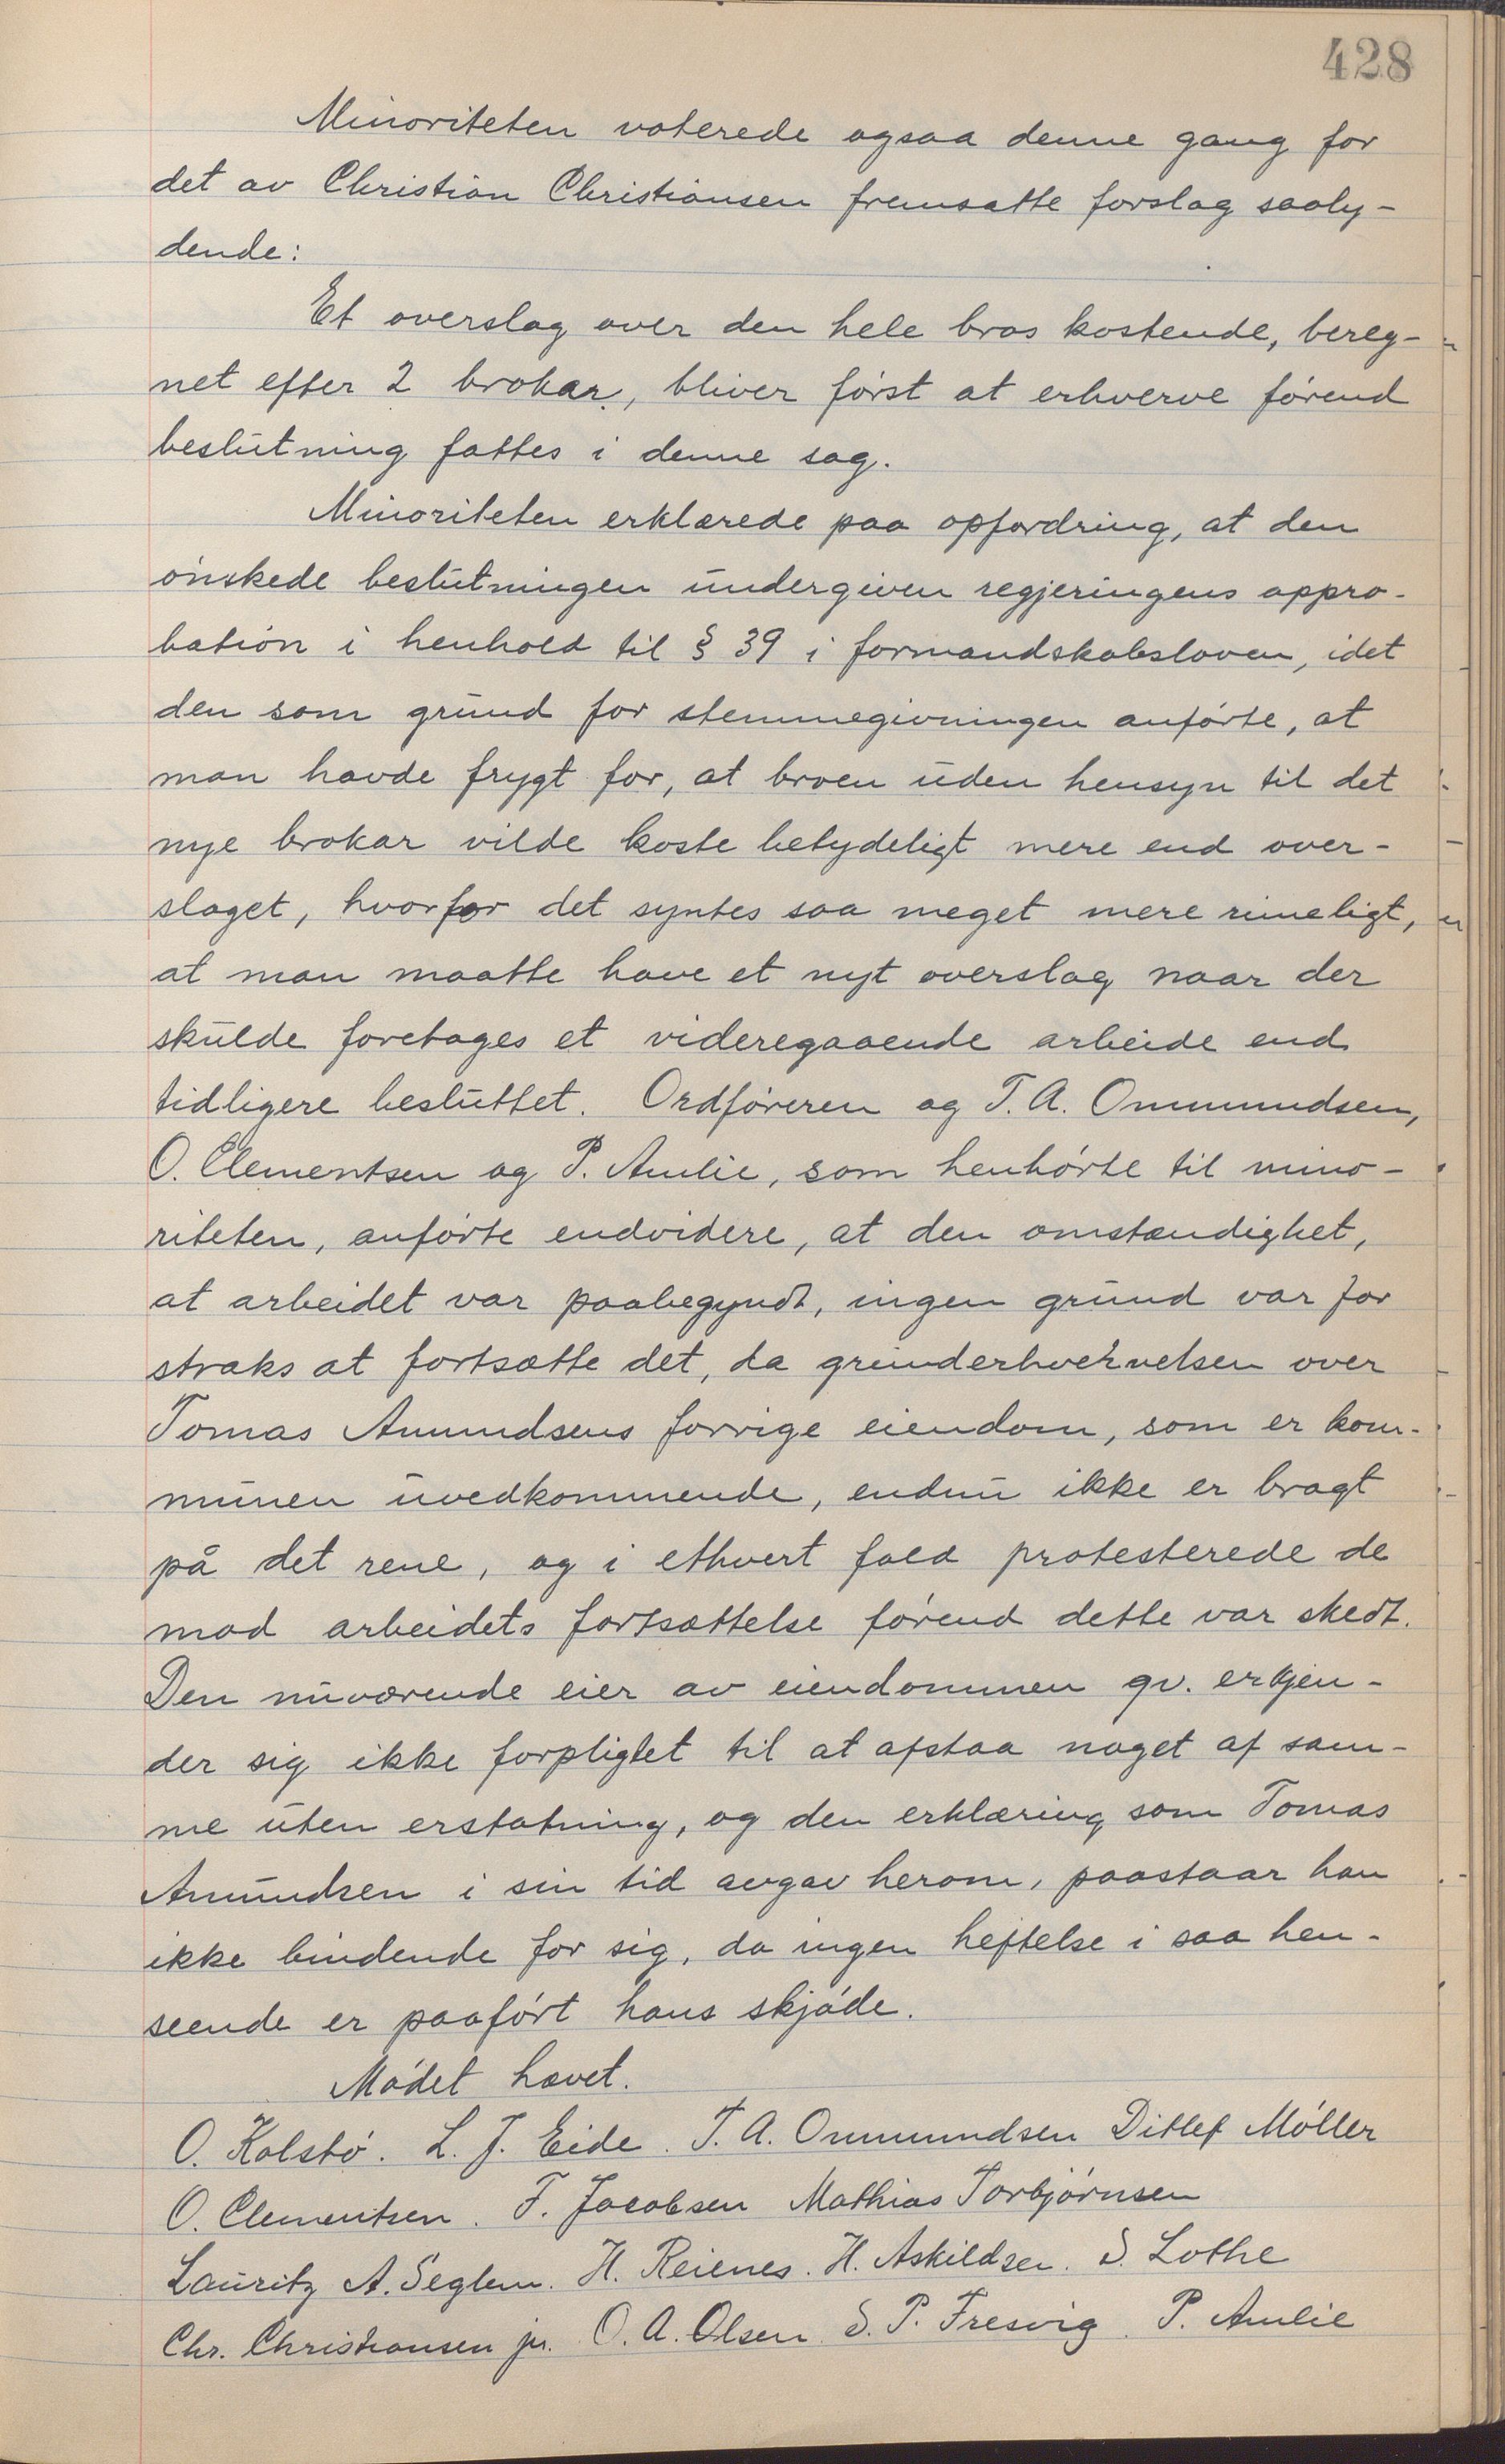 428
Minoriteten voterede ogsaa denne gang for
det av Christian Christiansen fremsatte forslag saaly-
dende:
Et overslag over den hele bros kostende, bereg-
net efter 2 brokar, bliver først at erhverve førend
beslutning fattes i denne sag.
Minoriteten erklærede paa opfordring, at den
ønskede beslutningen undergiven regjeringens appro-
bation i henhold til § 39 i formandskabsloven, idet
den som grund for stemmegivningen anførte, at
man havde frygt for, at broen uden hensyn til det
nye brokar vilde koste betydeligt mere end over-
slaget, hvorfor det syntes saa meget mere rimeligt,
at man maatte have et nyt overslag naar der
skulde foretages et videregaaende arbeide end
tidligere besluttet. Ordføreren og T. A. Ommundsen,
O. Clementsen og P. Amlie, som henhørte til mino-
riteten, anførte endvidere, at den omstændighet,
at arbeidet var paabegyndt, ingen grund var for
straks at fortsætte det, da grunderhvervelsen over
Tomas Amundsens forrige eiendom, som er kom-
munen uvedkommende, endnu ikke er bragt
på det rene, og i ethvert fald protesterede de
mod arbeidets fortsættelse førend dette var skedt.
Den nuværende eier av eiendommen gv. erkjen-
der sig ikke forpligtet til at afstaa noget af sam-
me uten erstatning, og den erklæring som Tomas
Amundsen i sin tid avgav herom, paastaar han
ikke bindende for sig, da ingen heftelse i saa hen-
seende er paaført hans skjøde.
Mødet hævet.
O. Kolstø. L. J. Eide. T. A. Ommundsen Ditlef Møller
O. Clementsen. F. Jacobsen Mathias Torbjørnsen
Lauritz A. Seglem. H. Reienes. H. Askildsen. S. Lothe
Chr. Christiansen jr. O. A. Olsen S. P. Fresvig. P. Amlie